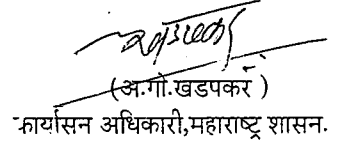 खडपकर
(अ.गो.खडपकर )
कार्यासन अधिकारी,महाराष्ट्र शासन.